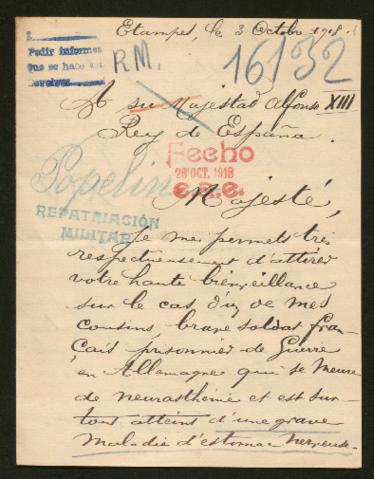 Etampes, le 3 Octobre 1918.
Pedir informes
Que se hace
R.M.
16132
A su Majestad Alfonso XIII
Rey de España.
Fecho
26 OCT. 1918
Popelin
Majesté,
REPATRIACIÓN
MILITAR
Je me permets très
respectueusement d'attirer
votre haute bienveillance
sur le cas d'un de mes
cousins, brave soldat fran-
çais prisonnier de Guerre
en Allemagne qui se meure
de neurasthénie et est sur-
tout atteint d'une grave
maladie d'estomac nerveuse.